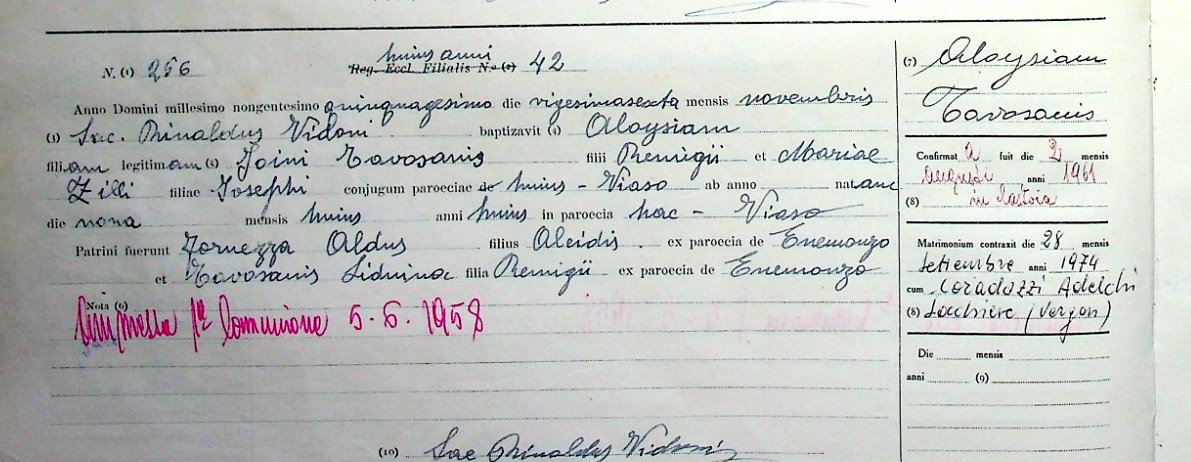 N. (1) 256 huius anni Reg. Eccl. Filialis N. (2) 42
Anno Domini millesimo nongentesimo quinquagesimo die vigesimasexta mensis novembris
(3) Sac. Rinaldus Vidoni baptizavit (4) Aloysiam
filiam legitimam (5) Tavosanis filii Remigii et Mariae
Zilli filiae Josephi conjugum paroeciae de huius - Viaso ab anno natam
die nona mensis huius anni huius in paroecia hac - Viaso
Patrini fuerunt Aldus filius Alcidis ex paroecia de Enemonzo
et Tavosanis Lidwina filia Remigii ex paroecia de Enemonzo
Nota (6)
1a Comunione 5-6-1958
(10) Sac Rinaldus Vidoni
(7) Aloysiam
Tavosanis
Confirmata fuit die 2 mensis
augusti anni 1961
(8) in
Matrimonium contraxit die 28 mensis
settembre anni 1974
cum Coradazzi Adelchi
(8)
Die mensis
anni (9)